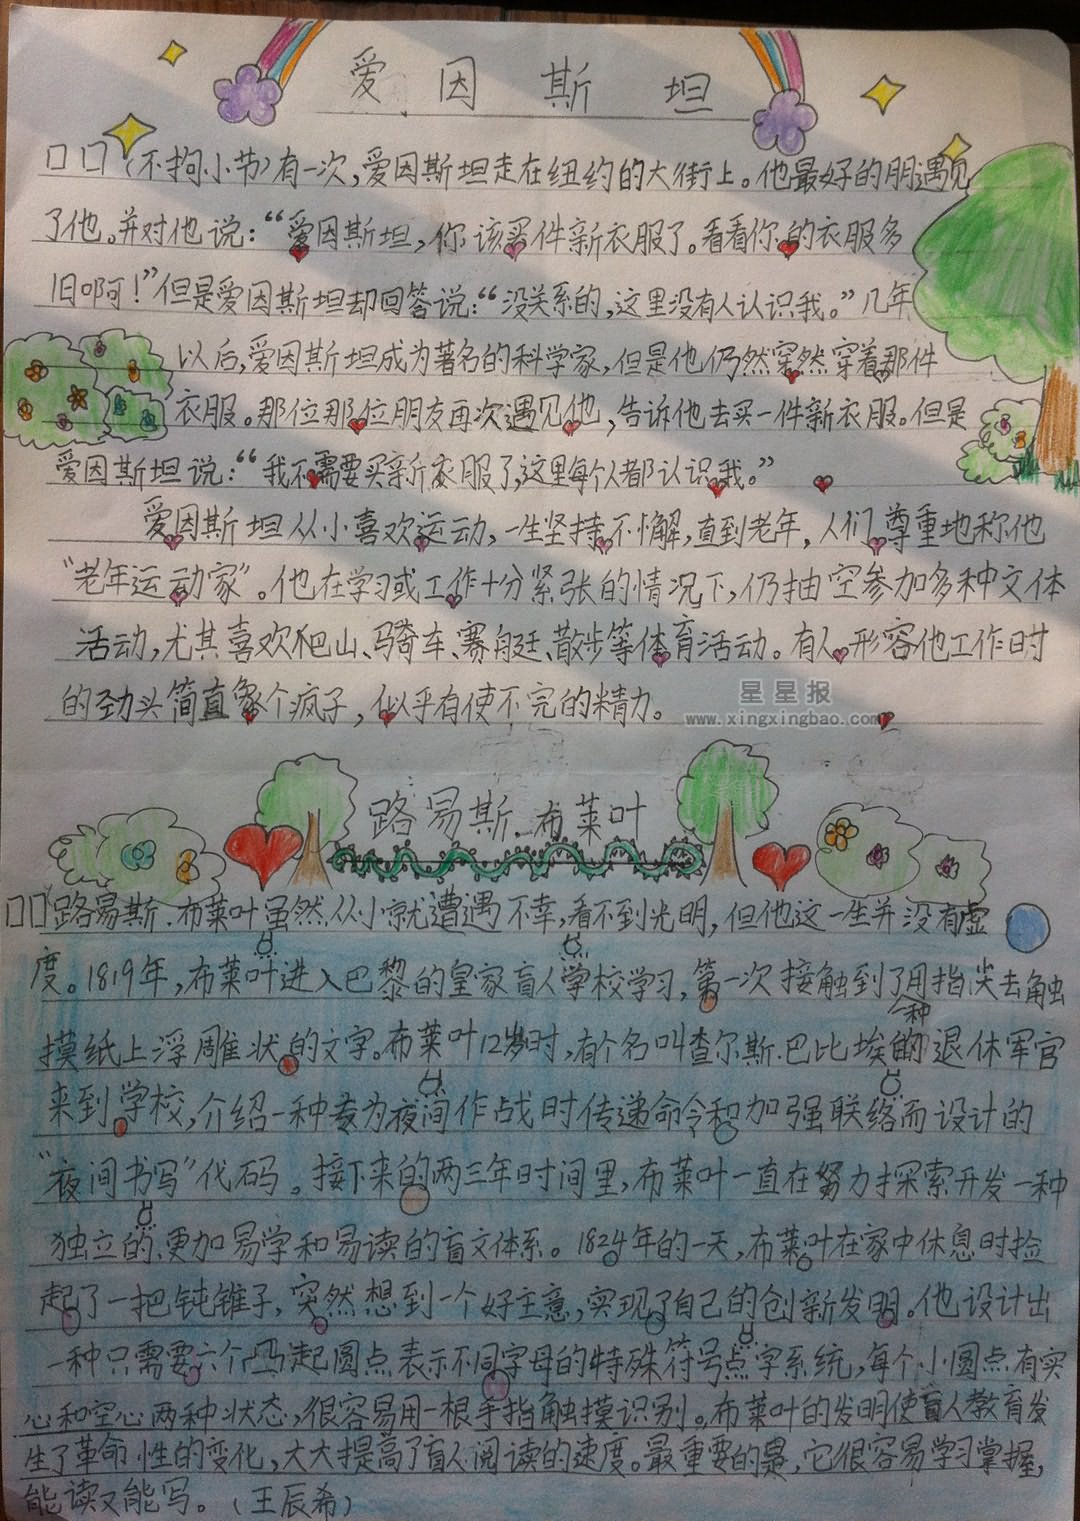 爱因斯坦
口口(不拘小节)有一次,爱因斯坦走在纽约的大街上。他最好的朋遇见
了他。并对他说:“爱因斯坦,你该买件新衣服了。看看你的衣服多
旧啊!”但是爱因斯坦却回答说:“没关系的,这里没有人认识我。”几年
以后,爱因斯坦成为著名的科学家,但是他仍然突然穿着那件
衣服。那位那位朋友再次遇见他,告诉他去买一件新衣服。但是
爱因斯坦说:“我不需要买新衣服了,这里每个人都认识我。”
爱因斯坦从小喜欢运动,一生坚持不懈,直到老年,人们尊重地称他
“老年运动家”。他在学习或工作十分紧张的情况下,仍抽空参加多种文体
活动,尤其喜欢爬山、骑车、赛艇、散步等体育活动。有人形容他工作时
的劲头简直象个疯子,似乎有使不完的精力。
星星报
www.xingxingbao.com
路易斯.布莱叶
口口路易斯.布莱叶虽然从小就遭遇不幸,看不到光明,但他这一生并没有虚
度。1819年,布莱叶进入巴黎的皇家盲人学校学习,第一次接触到了一种用指尖去触
摸纸上浮雕状的文字。布莱叶12岁时,有个名叫查尔斯.巴比埃的退休军官
来到学校,介绍一种专为夜间作战时传递命令和加强联络而设计的
“夜间书写”代码。接下来的两三年时间里,布莱叶一直在努力探索开发一种
独立的、更加易学和易读的盲文体系。1824年的一天,布莱叶在家中休息时捡
起了一把钝锥子,突然想到一个好主意,实现了自己的创新发明。他设计出
一种只需要六个凸起圆点表示不同字母的特殊符号点字系统,每个小圆点有实
心和空心两种状态,很容易用一根手指触摸识别。布莱叶的发明使盲人教育发
生了革命性的变化,大大提高了盲人阅读的速度。最重要的是,它很容易学习掌握,
能读又能写。(王辰希)